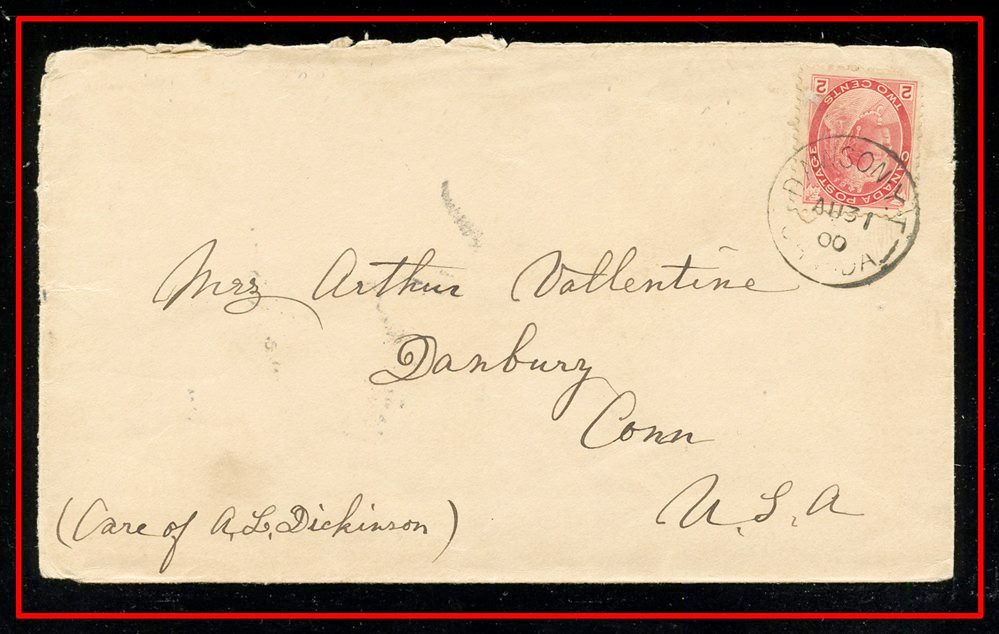 2 TWO CENTS 2
CANADA POSTAGE
DAWSON Y.T.
AU 31
00
CANADA
Mrs Arthur Vallentine
Danbury
Conn
U.S.A
(Care of A.L. Dickinson)